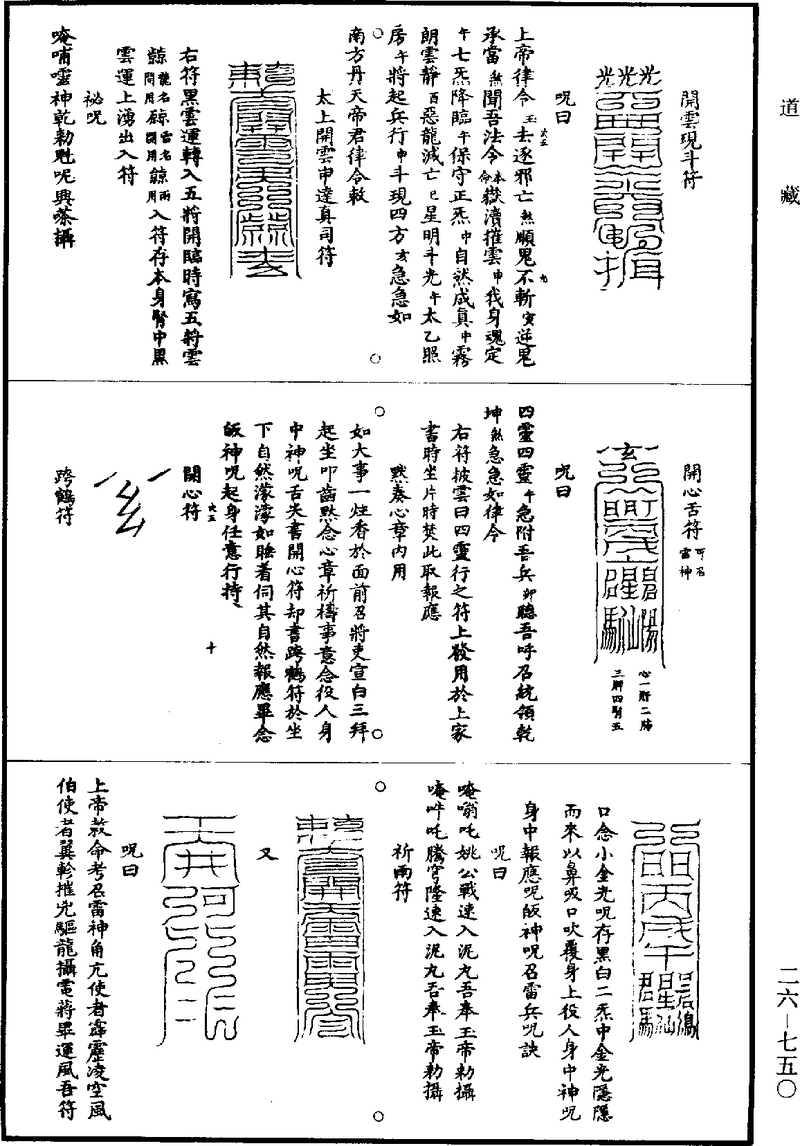 道藏
開雲現斗符
光光光
咒曰
上帝律令玉去逐邪亡煞順鬼不斬寅逆鬼
承當煞聞吾法令本命嶽瀆摧雲申我身魂定
午七炁降臨午保守正炁中自然成真中霧
朗雲靜酉惡龍滅亡巳星明斗光午太乙照
房午將起兵行申斗現四方亥急急如
南方丹天帝君律令敕
太上開雲申達真司符
右符黑雲運轉入五將開臨時寫五將雲
入符存本身腎中黑
雲運上湧出入符
祕咒
唵哺𡃤神乾勑魁呢興茶攝
開心舌符可召雷神
心一肝二脾
三肺四腎五
咒曰
四靈四靈午急附吾兵卯聽吾呼召統領乾
坤煞急急如律令
右符披雲曰四靈行之符上發用於上家
書時坐片時焚此取報應
默奏心章内用
如大事一炷香於面前召將吏宣白三拜
起坐叩齒默念心章祈禱事意念役人身
中神咒舌尖書開心符却書跨鶴符於坐
下自然濛濛如睡着伺其自然報應畢念
皈神咒起身任意行持
十
開心符
跨鶴符
口念小金光咒存黑白二炁中金光隱隱
而來以鼻吸口吹覆身上役人身中神咒
身中報應咒皈神咒召雷兵咒訣
咒曰
唵嗡吒姚公戰速入泥丸吾奉玉帝勑攝
唵吽吒騰穹隆速入泥丸吾奉玉帝勑攝
祈雨符
又
咒曰
上帝敕命考召雷神角亢使者霹靂凌空風
伯使者翼軫摧兇驅龍攝電蔣畢運風吾符
二六—七五〇